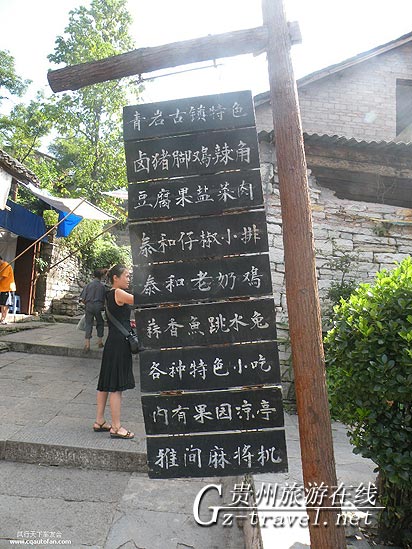 青岩古镇特色
卤猪脚鸡辣角
豆腐果盐菜肉
泰和仔椒小排
泰和老奶鸡
蒜香魚跳水兔
各种特色小吃
内有果园凉亭
雅间麻将机
贵州旅游在线
Gz-travel.net
风行天下车友会
www.cqautofan.com